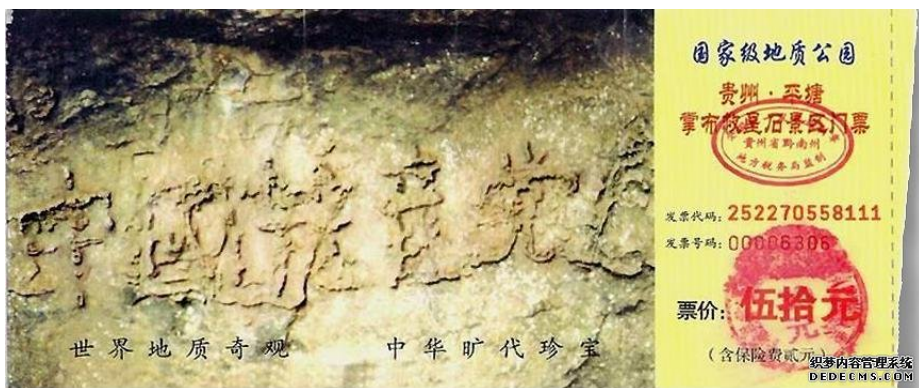 中國共産党
世界地质奇观 中华旷代珍宝
国家级地质公园
贵州·平塘
掌布救星石景区门票
贵州省黔南州
地方税务局监制
发票代码：252270558111
发票号码：00006306
票价：伍拾元
（含保险费贰元）
织梦内容管理系统
DEDECMS.COM